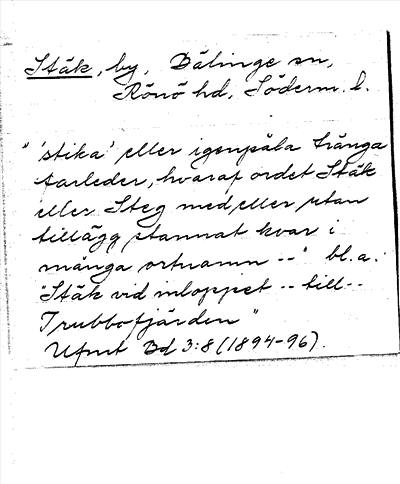 Stäk, by, Bälinge sn,
Rönö hd, Söderm. l.
"'stika' eller igenpåla trånga
farleder, hvaraf ordet Stäk
eller Steg med eller utan
tillägg stannat kvar i
många ortnamn --" bl.a.
"Stäk vid inloppet -- till --
Trubbofjärden"
Ufmt Bd 3:8 (1894-96).